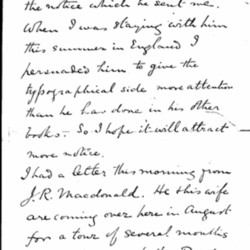 the notice which he sent me.
When I was staying with him
this summer in England I
persuaded him to give the
typographical side more attention
than he has done in his other
books.— So I hope it will attract
more notice.
I had a letter this morning from
J. R. Macdonald. He & his wife
are coming over here in August
for a tour of several months